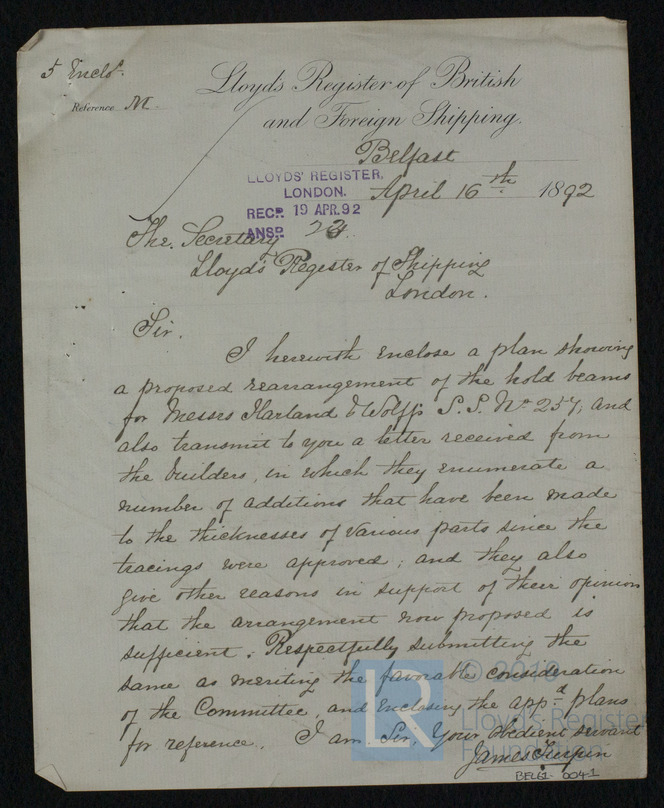 5 Enclos.
Lloyd's Register of British
Reference M.
and Foreign Shipping.
Belfast
April 16th 1892
LLOYDS' REGISTER.
LONDON.
RECD. 19 APR. 92
ANSD. 23
The Secretary
Lloyd's Register of Shipping
London.
Sir.
I herewith enclose a plan showing
a proposed rearrangement of the hold beams
for Messrs Harland & Wolff's S.S. No 257, and
also transmit to you a letter received from
the builders, in which they enumerate a
number of additions that have been made
to the thicknesses of various parts since the
tracings were approved; and they also
give other reasons in support of their opinion
that the arrangement now proposed is
sufficient. Respectfully submitting the
same as meriting the favorable consideration
of the Committee, and enclosing the appd plans
for reference. I am Sir, Your obedient servant
James Turpin
BEL61-0041
LR
© 2019
Lloyd's Register
Foundation